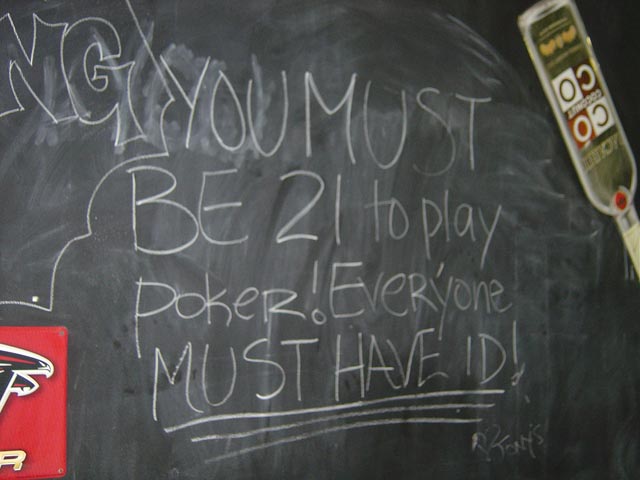 NG
YOU MUST
BE 21 to play
poker! Everyone
MUST HAVE ID!
COCO
COCONUT
R